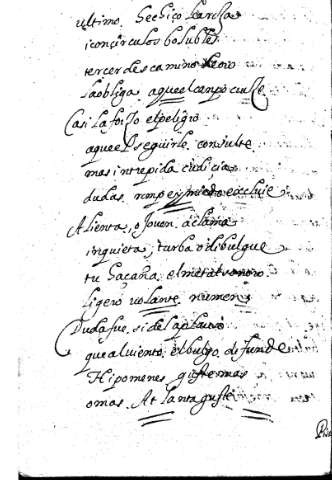 ultimo. hechiço la roxa
i con circulos bolubles
tercer descamino de oro
la obliga. aquel campo cruze
Casi la forzo el peligro
a que el seguirle. consulte
mas intrepida cudicia
dudas. rompe excluie
Alienta, o Joven. aclama
inquieta, turba o dibulgue
tu haçaña. el metal sonoro
ligero volante numen
Duda fue. si del aplauso
que al viento. el bulgo. difunde
Hipomenes guste mas
o mas. Atlanta guste